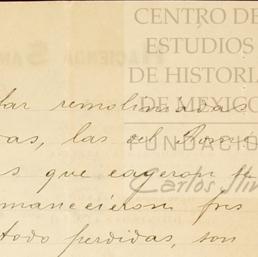 CENTRO DE
ESTUDIOS
DE HISTORIA
DE MEXICO
FUNDACIÓN
Carlos Slim
tar remolinadas
as, las del
s que cayeron
manecieron
todo perdidas, son